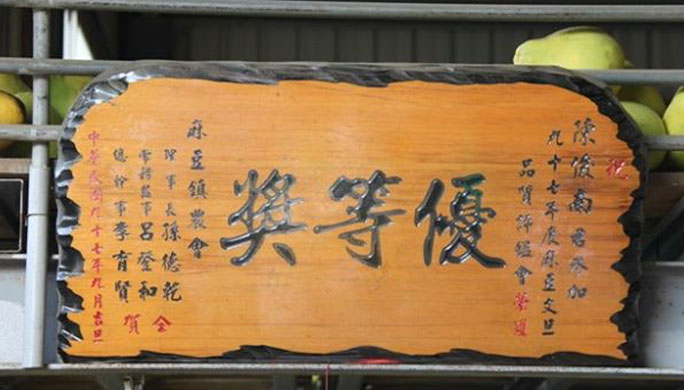 祝
陳俊南君參加
九十七年度麻豆文旦
品質評鑑會榮獲
優等獎
麻豆鎮農會
理事長孫德乾
常務監事呂登和
總幹事李育賢
仝賀
中華民國九十七年九月吉旦